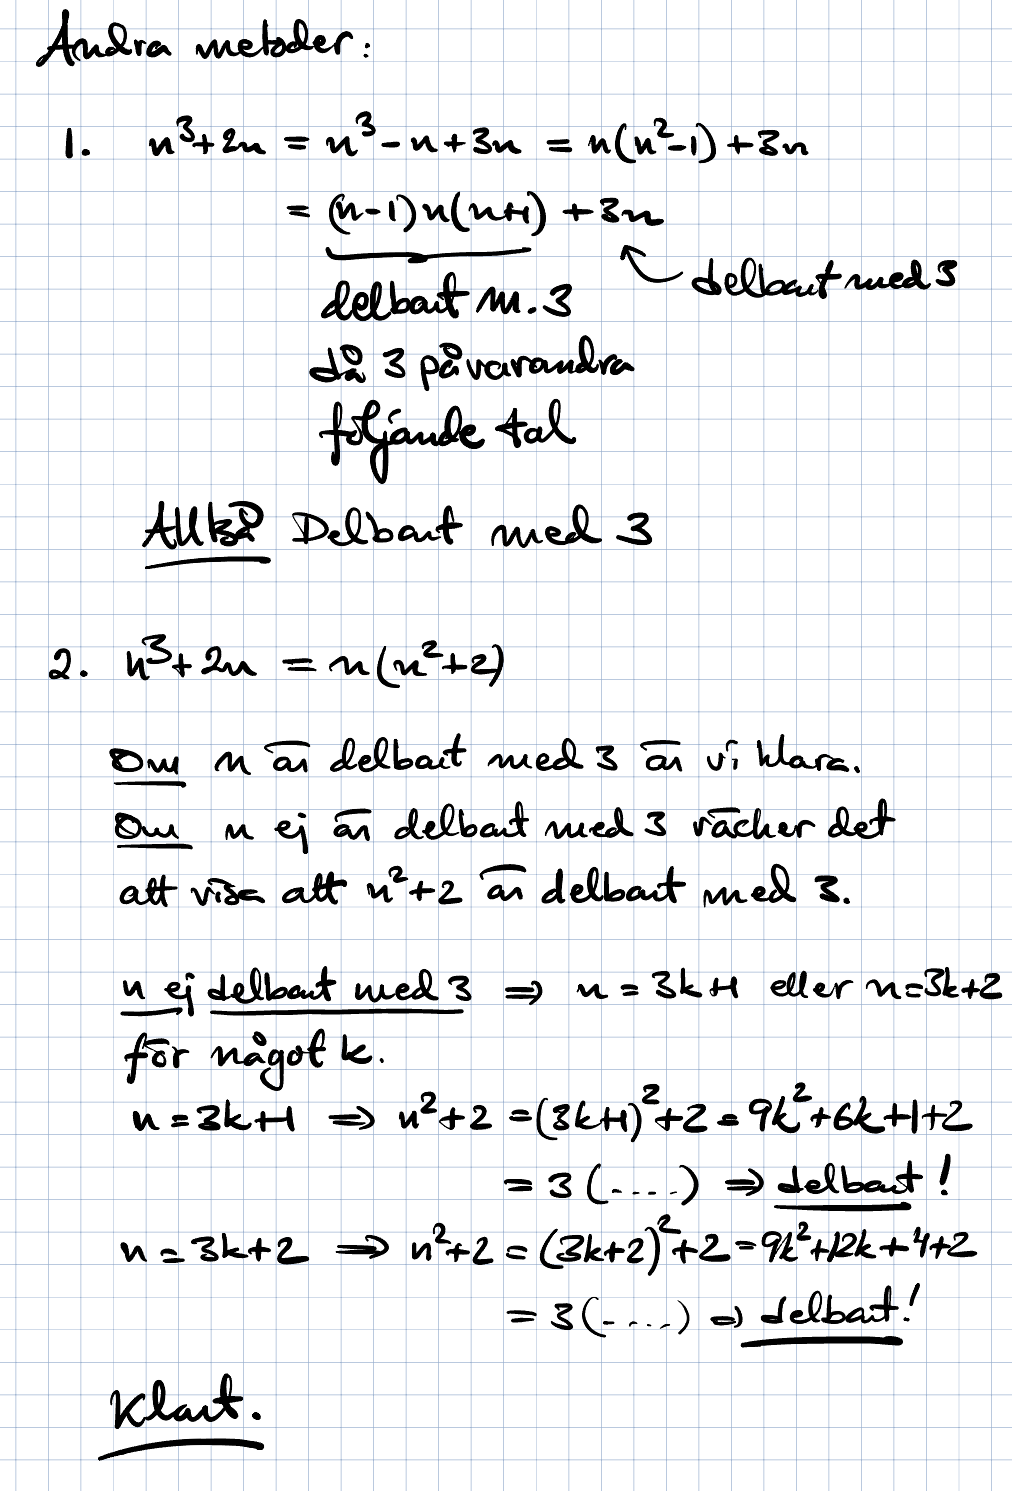 Andra metoder:
1. n³+2n = n³-n+3n = n(n²-1)+3n
= (n-1)n(n+1) +3n
delbart med 3
delbart m. 3
då 3 på varandra
följande tal
Alltså Delbart med 3
2. n³+2n = n(n²+2)
Om n är delbart med 3 är vi klara.
Om n ej är delbart med 3 räcker det
att visa att n²+2 är delbart med 3.
n ej delbart med 3 ⇒ n = 3k+1 eller n=3k+2
för något k.
n=3k+1 ⇒ n²+2 =(3k+1)²+2 = 9k²+6k+1+2
= 3 (....) ⇒ delbart!
n=3k+2 ⇒ n²+2 = (3k+2)²+2=9k²+12k+4+2
= 3(....) ⇒ delbart!
Klart.